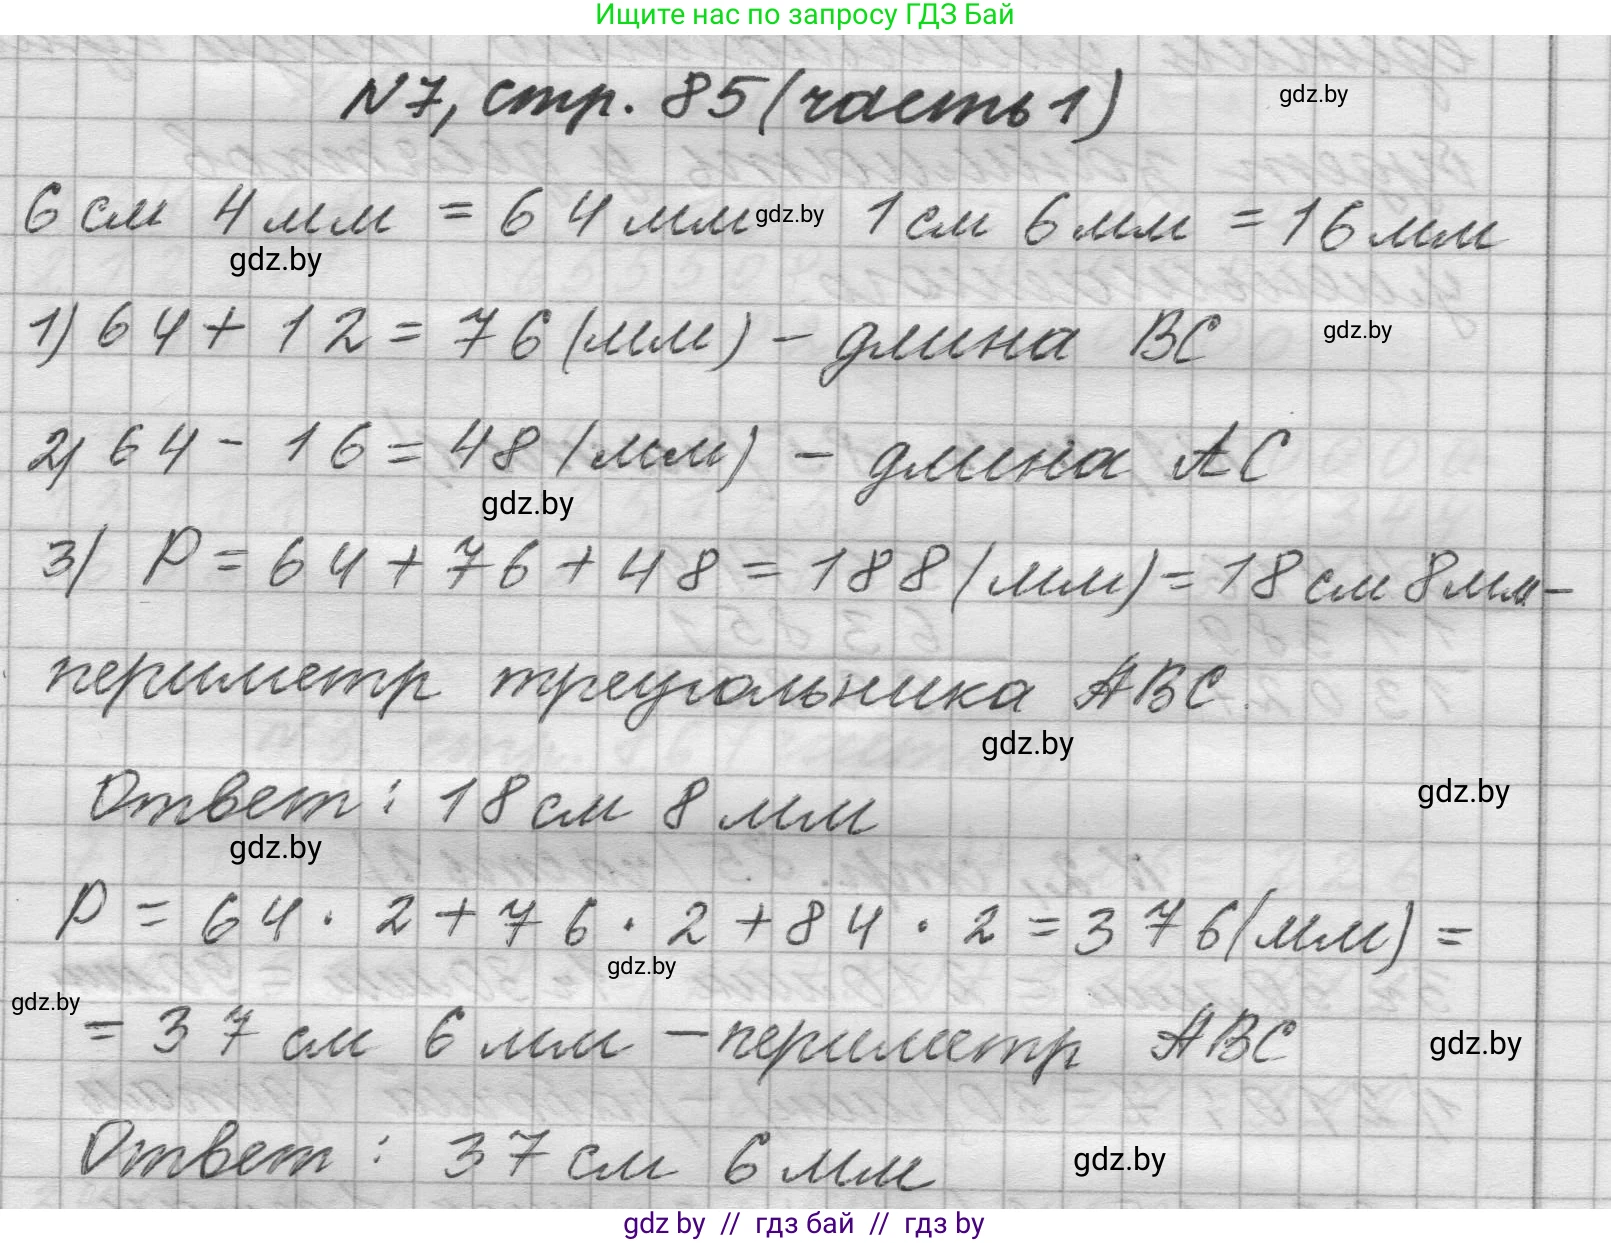 Ищите нас по запросу ГДЗ Бай
N7, стр. 85 (часть 1)
gdz.by
6 см 4 мм = 64 мм gdz.by 1 см 6 мм = 16 мм
gdz.by
1) 64 + 12 = 76 (мм) - длина BC
gdz.by
2) 64 - 16 = 48 (мм) - длина AC
gdz.by
3) P = 64 + 76 + 48 = 188 (мм) = 18 см 8 мм -
периметр треугольника ABC.
gdz.by
gdz.by
Ответ: 18 см 8 мм
gdz.by
P = 64 · 2 + 76 · 2 + 84 · 2 = 376 (мм) =
gdz.by
gdz.by
= 37 см 6 мм - периметр ABC
gdz.by
Ответ: 37 см 6 мм
gdz.by
gdz by // гдз бай // гдз by